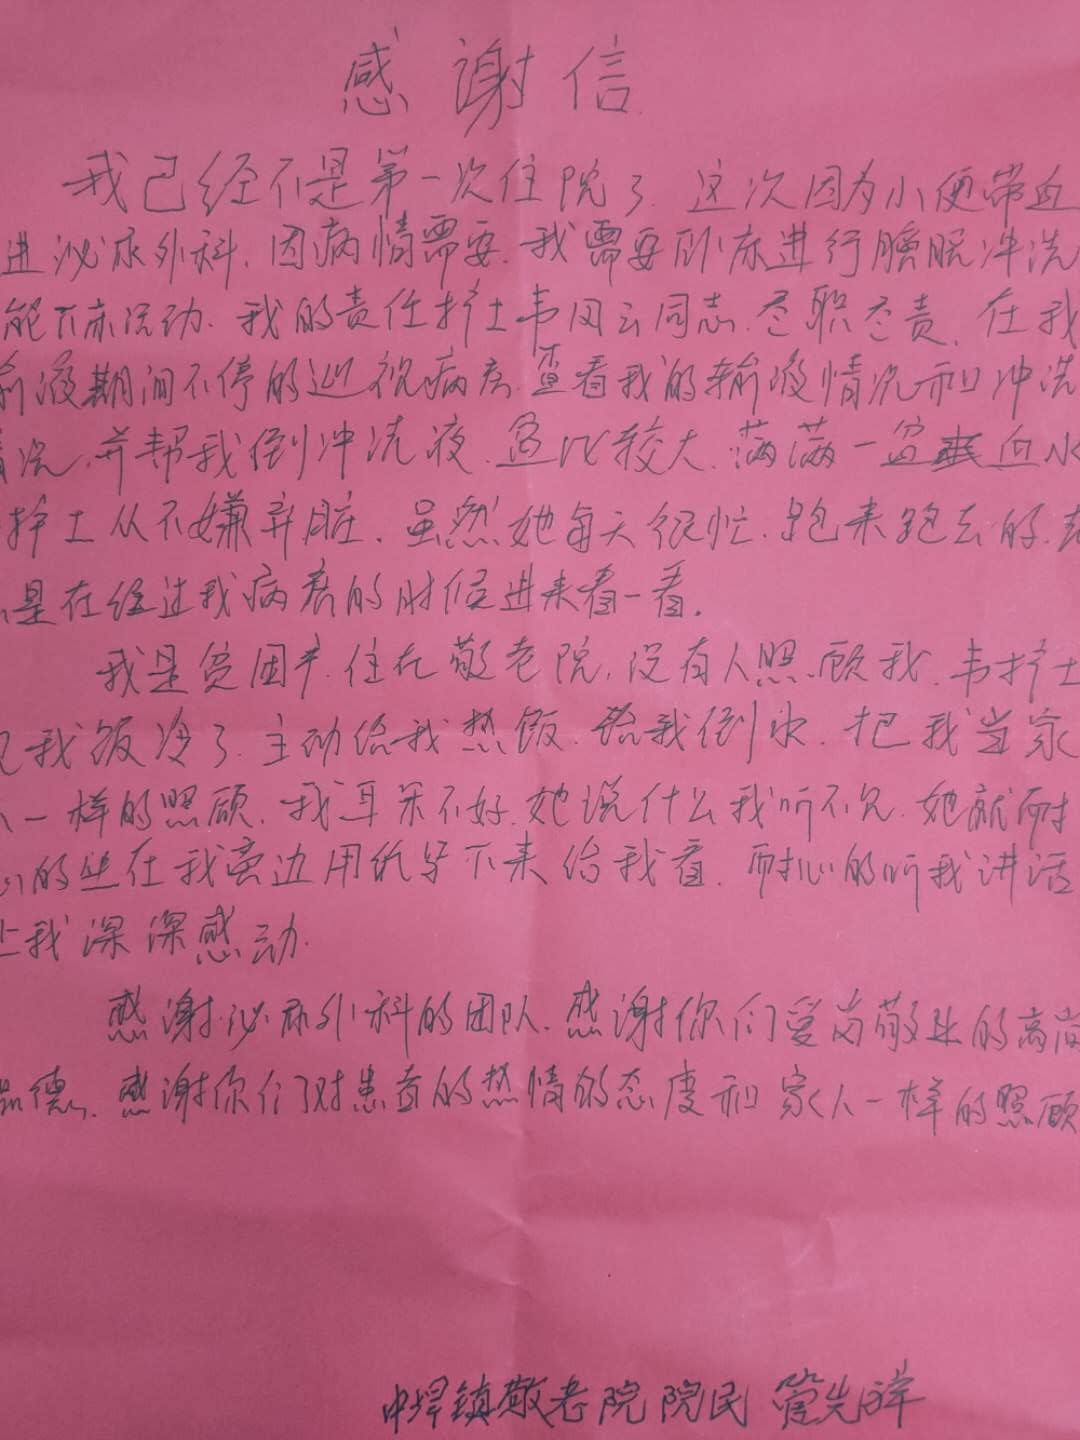 感谢信
我已经不是第一次住院了.这次因为小便带血
进泌尿外科.因病情需要.我需要卧床进行膀胱冲洗
能下床活动.我的责任护士韦凤云同志.尽职尽责.在我
输液期间不停的巡视病房.查看我的输液情况和冲洗
情况.并帮我倒冲洗液.盆比较大.满满一盆血水
护士从不嫌弃脏.虽然她每天很忙.跑来跑去的.
是在经过我病房的时候进来看一看.
我是贫困户.住在敬老院.没有人照顾我.韦护士
见我饭冷了.主动给我热饭.给我倒水.把我当家
人一样的照顾.我耳朵不好.她说什么我听不见.她就耐
心的坐在我旁边用纸写下来给我看.耐心的听我讲话
让我深深感动.
感谢泌尿外科的团队.感谢你们爱岗敬业的高尚
品德.感谢你们对患者的热情的态度和家人一样的照顾
中垾镇敬老院院民 管先祥